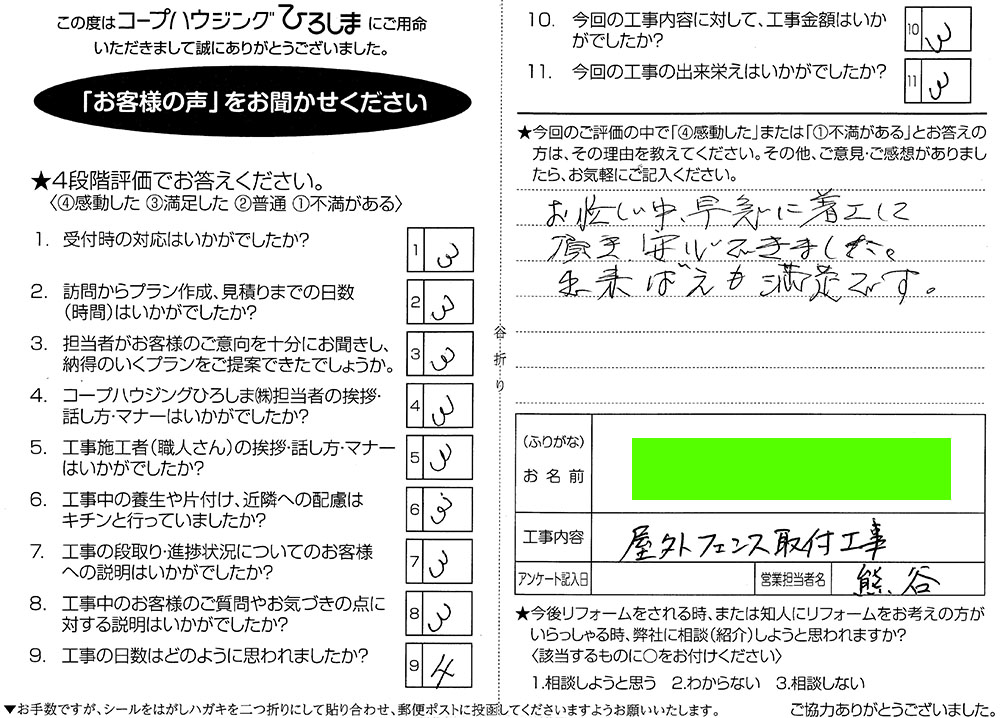 この度はコープハウジングひろしまにご用命
いただきまして誠にありがとうございました。
「お客様の声」をお聞かせください
★4段階評価でお答えください。
〈④感動した ③満足した ②普通 ①不満がある〉
1. 受付時の対応はいかがでしたか?
1 3
2. 訪問からプラン作成、見積りまでの日数
（時間）はいかがでしたか?
2 3
3. 担当者がお客様のご意向を十分にお聞きし、
納得のいくプランをご提案できたでしょうか。
3 3
4. コープハウジングひろしま㈱担当者の挨拶・
話し方・マナーはいかがでしたか?
4 3
5. 工事施工者（職人さん）の挨拶・話し方・マナー
はいかがでしたか?
5 3
6. 工事中の養生や片付け、近隣への配慮は
キチンと行っていましたか?
6 3
7. 工事の段取り・進捗状況についてのお客様
への説明はいかがでしたか?
7 3
8. 工事中のお客様のご質問やお気づきの点に
対する説明はいかがでしたか?
8 3
9. 工事の日数はどのように思われましたか?
9 4
▼お手数ですが、シールをはがしハガキを二つ折りにして貼り合わせ、郵便ポストに投函してくださいますようお願いいたします。
谷折り
10. 今回の工事内容に対して、工事金額はいか
がでしたか?
10 3
11. 今回の工事の出来栄えはいかがでしたか?
11 3
★今回のご評価の中で「④感動した」または「①不満がある」とお答えの
方は、その理由を教えてください。その他、ご意見・ご感想がありまし
たら、お気軽にご記入ください。
お忙しい中、早急に着工して
頂き 安心できました。
出来ばえも満足です。
（ふりがな）
お名前
工事内容
屋外フェンス取付工事
アンケート記入日
営業担当者名
熊谷
★今後リフォームをされる時、または知人にリフォームをお考えの方が
いらっしゃる時、弊社に相談（紹介）しようと思われますか?
〈該当するものに○をお付けください〉
1.相談しようと思う 2.わからない 3.相談しない
ご協力ありがとうございました。